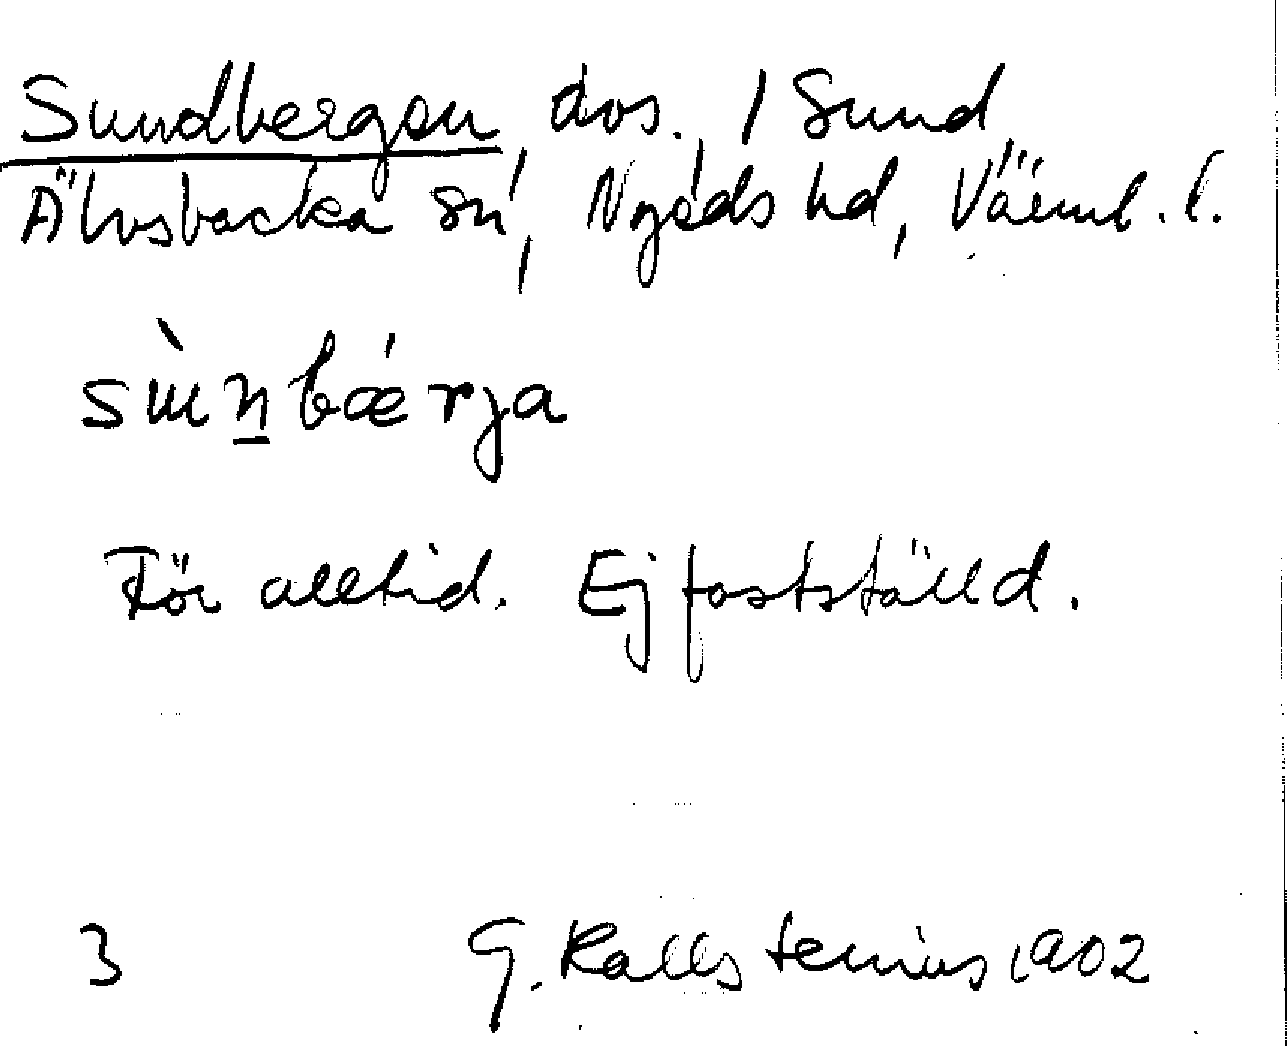 Sundbergen, avs., / Sund,
Älvsbacka sn, Nyeds hd, Värml. l.
sùn̲bǽrja
För alltid. Ej fastställd.
3 G. Kallstenius 1902